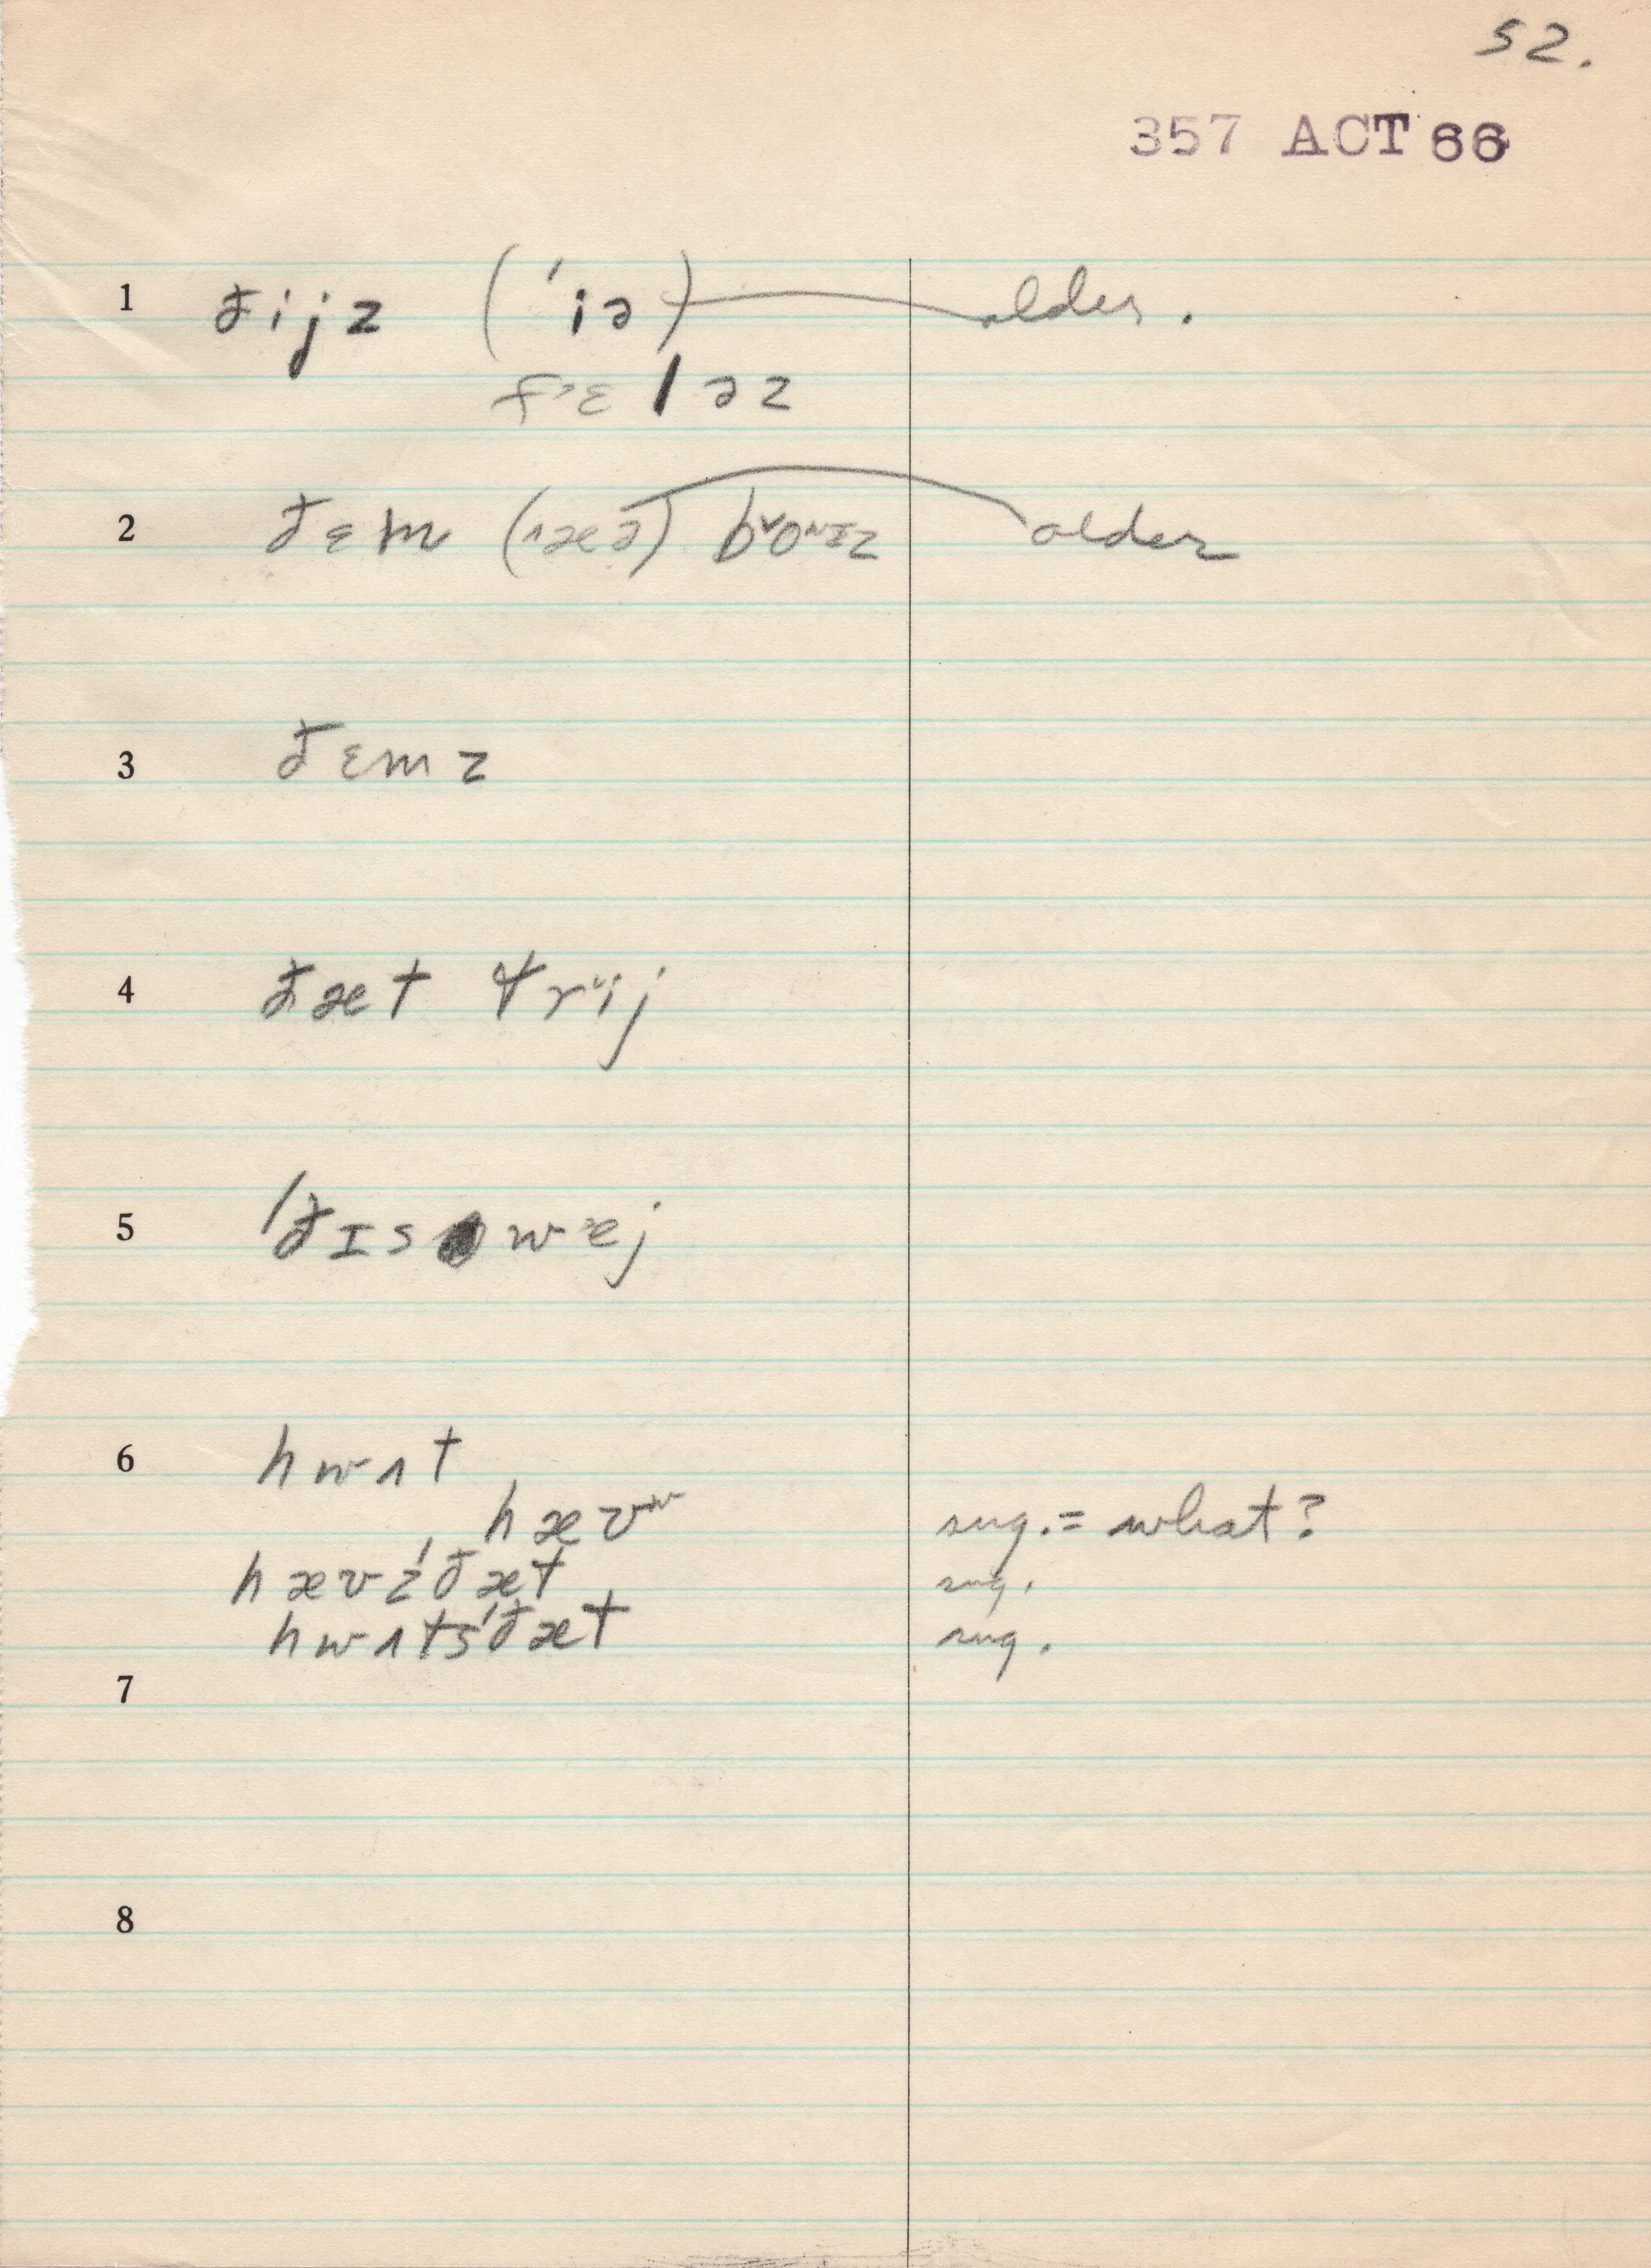 52.
357 ACT 66
1 ðijz (ˈiə) older.
fɛləz
2 ðɛm older
3 ðɛmz
4 ðæt
5 ˈðɪs wej
6 hwʌt
hævʷ sug. = what?
hævzˈðæt sug.
hwʌtsˈðæt sug.
7
8